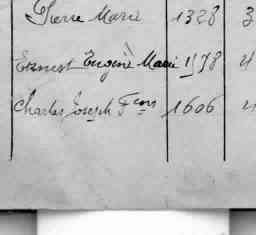 Pierre Marie 1328 3
Ernest Eugène Marie 1578 4
Charles Joseph Fçois 1606 4